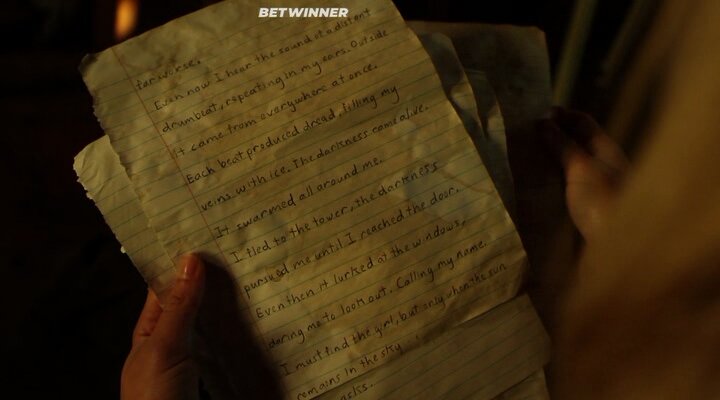 BETWINNER
far worse.
Even now I hear the sound of a distant
drumbeat, repeating in my ears. Outside
It came from everywhere at once.
Each beat produced dread, filling my
veins with ice. The darkness came alive.
It swarmed all around me.
I fled to the tower, the darkness
pursued me until I reached the door.
Even then it lurked at the windows,
daring me to look out. Calling my name.
I must find the girl, but only when the sun
remains in the sky